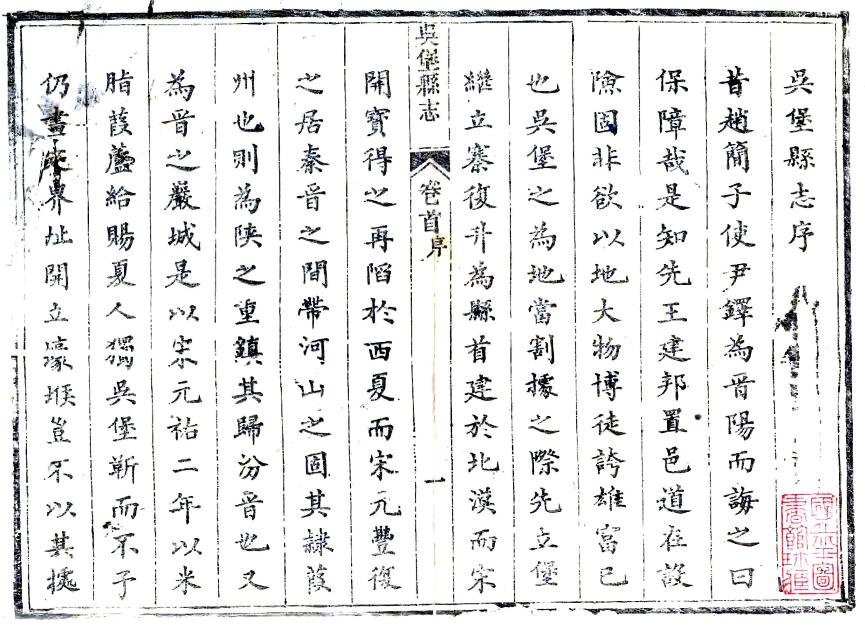 吳堡縣志序
昔趙簡子使尹鐸為晋陽而誨之曰
保障哉是知先王建邦置邑道在設
險固非欲以地大物博徒誇雄富已
也吳堡之為地當割據之際先立堡
繼立寨復升為縣首建於北漢而宋
吳堡縣志 卷首序 一
開寶得之再陷於西夏而宋元豐復
之居秦晋之間帶河山之固其隷葭
州也則為陜之重鎮其歸汾晋也又
為晋之嚴城是以宋元祐二年以米
脂葭蘆給賜夏人獨吳堡靳而不予
仍畫界址開立壕堠豈不以其扼